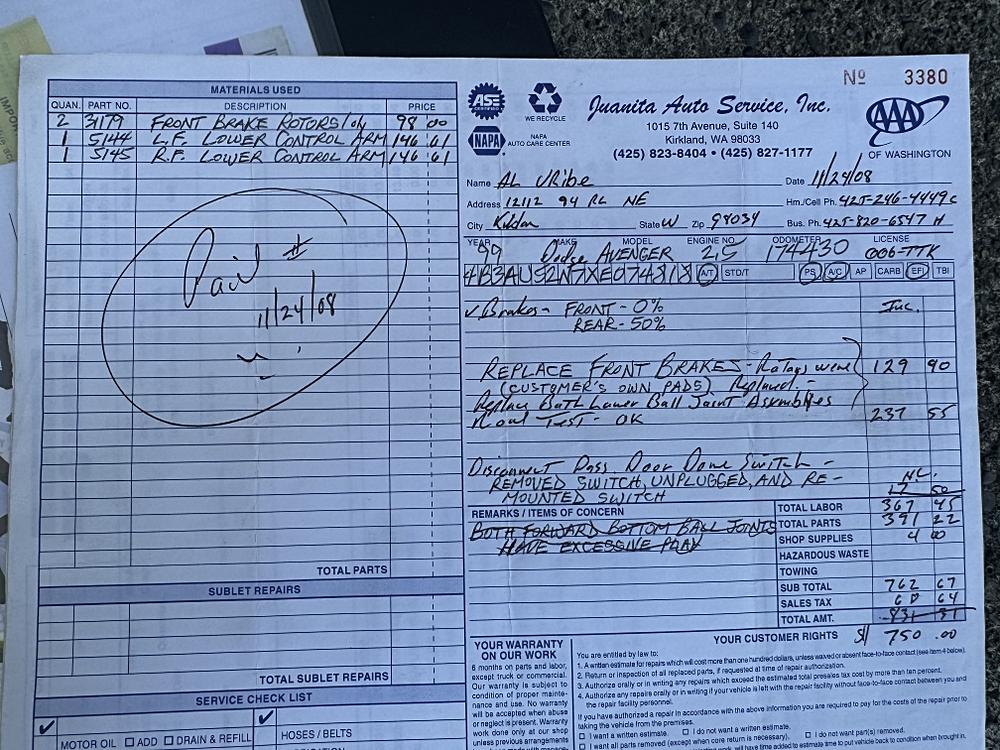 MATERIALS USED
QUAN. PART NO. DESCRIPTION PRICE
2 3179 FRONT BRAKE ROTORS 98 00
1 5144 L.F. LOWER CONTROL ARM 146 61
1 5145 R.F. LOWER CONTROL ARM 146 61
Paid #
11/24/08
TOTAL PARTS
SUBLET REPAIRS
TOTAL SUBLET REPAIRS
SERVICE CHECK LIST
MOTOR OIL ADD DRAIN & REFILL
HOSES / BELTS
Nº 3380
ASE
CERTIFIED
WE RECYCLE
NAPA
NAPA
AUTO CARE CENTER
Juanita Auto Service, Inc.
1015 7th Avenue, Suite 140
Kirkland, WA 98033
(425) 823-8404 • (425) 827-1177
AAA
OF WASHINGTON
Name AL URibe Date 11/24/08
Address 12112 94 PL NE Hm./Cell Ph. 425-246-4449c
City State W Zip 98034 Bus. Ph. 425-820-6547 H
YEAR MAKE MODEL ENGINE NO. ODOMETER LICENSE
99 Dodge AVENGER 2.5 174430 006-TTK
4B3AU52N7XE074818 A/T STD/T PS A/C AP CARB EFI TBI
✓ Brakes - FRONT - 0% Inc.
REAR - 50%
REPLACE FRONT BRAKES - Rotors were 129 90
(CUSTOMER'S OWN PADS) Replaced. -
Replace Both Lower Ball Joint Assemblies
Road Test - OK 237 55
Disconnect Pass. Door Dome Switch -
REMOVED SWITCH, UNPLUGGED, AND RE- NC.
MOUNTED SWITCH 17 50
REMARKS / ITEMS OF CONCERN
BOTH FORWARD BOTTOM BALL JOINTS
HAVE EXCESSIVE PLAY
TOTAL LABOR 367 45
TOTAL PARTS 391 22
SHOP SUPPLIES 4 00
HAZARDOUS WASTE
TOWING
SUB TOTAL 762 67
SALES TAX 68 64
TOTAL AMT. 831 31
$ 750 .00
YOUR WARRANTY
ON OUR WORK
6 months on parts and labor,
except truck or commercial.
Our warranty is subject to
condition of proper mainte-
nance and use. No warranty
will be accepted when abuse
or neglect is present. Warranty
work done only at our shop
unless previous arrangements
YOUR CUSTOMER RIGHTS
You are entitled by law to:
1. A written estimate for repairs which will cost more than one hundred dollars, unless waived or absent face-to-face contact (see item 4 below).
2. Return or inspection of all replaced parts, if requested at time of repair authorization.
3. Authorize orally or in writing any repairs which exceed the estimated total presales tax cost by more than ten percent.
4. Authorize any repairs orally or in writing if your vehicle is left with the repair facility without face-to-face contact between you and
the repair facility personnel.
If you have authorized a repair in accordance with the above information you are required to pay for the costs of the repair prior to
taking the vehicle from the premises.
I want a written estimate. I do not want a written estimate.
I want all parts removed (except when core return is necessary). I do not want part(s) removed.